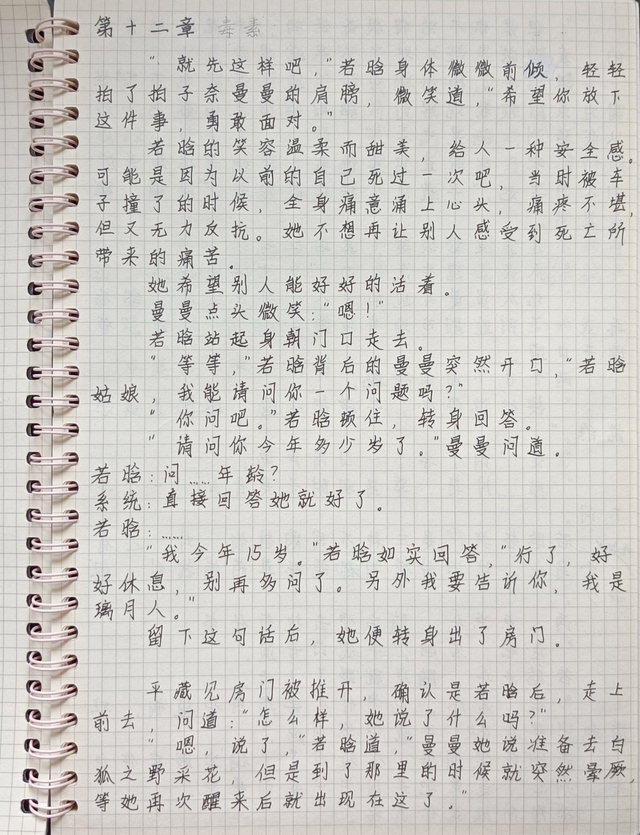 第十二章 毒素
"就先这样吧,"若晗身体微微前倾,轻轻
拍了拍子奈曼曼的肩膀,微笑道,"希望你放下
这件事,勇敢面对。"
若晗的笑容温柔而甜美,给人一种安全感。
可能是因为以前的自己死过一次吧,当时被车
子撞了的时候,全身痛意涌上心头,痛疼不堪,
但又无力反抗。她不想再让别人感受到死亡所
带来的痛苦。
她希望别人能好好的活着。
曼曼点头微笑:"嗯!"
若晗站起身朝门口走去。
"等等,"若晗背后的曼曼突然开口,"若晗
姑娘,我能请问你一个问题吗?"
"你问吧。"若晗顿住,转身回答。
"请问你今年多少岁了。"曼曼问道。
若晗:问……年龄?
系统:直接回答她就好了。
若晗:……
"我今年15岁。"若晗如实回答,"行了,好
好休息,别再多问了。另外我要告诉你,我是
璃月人。"
留下这句话后,她便转身出了房门。
平藏见房门被推开,确认是若晗后,走上
前去,问道:"怎么样,她说了什么吗?"
"嗯,说了,"若晗道,"曼曼她说准备去白
狐之野采花,但是到了那里的时候就突然晕厥,
等她再次醒来后就出现在这了。"